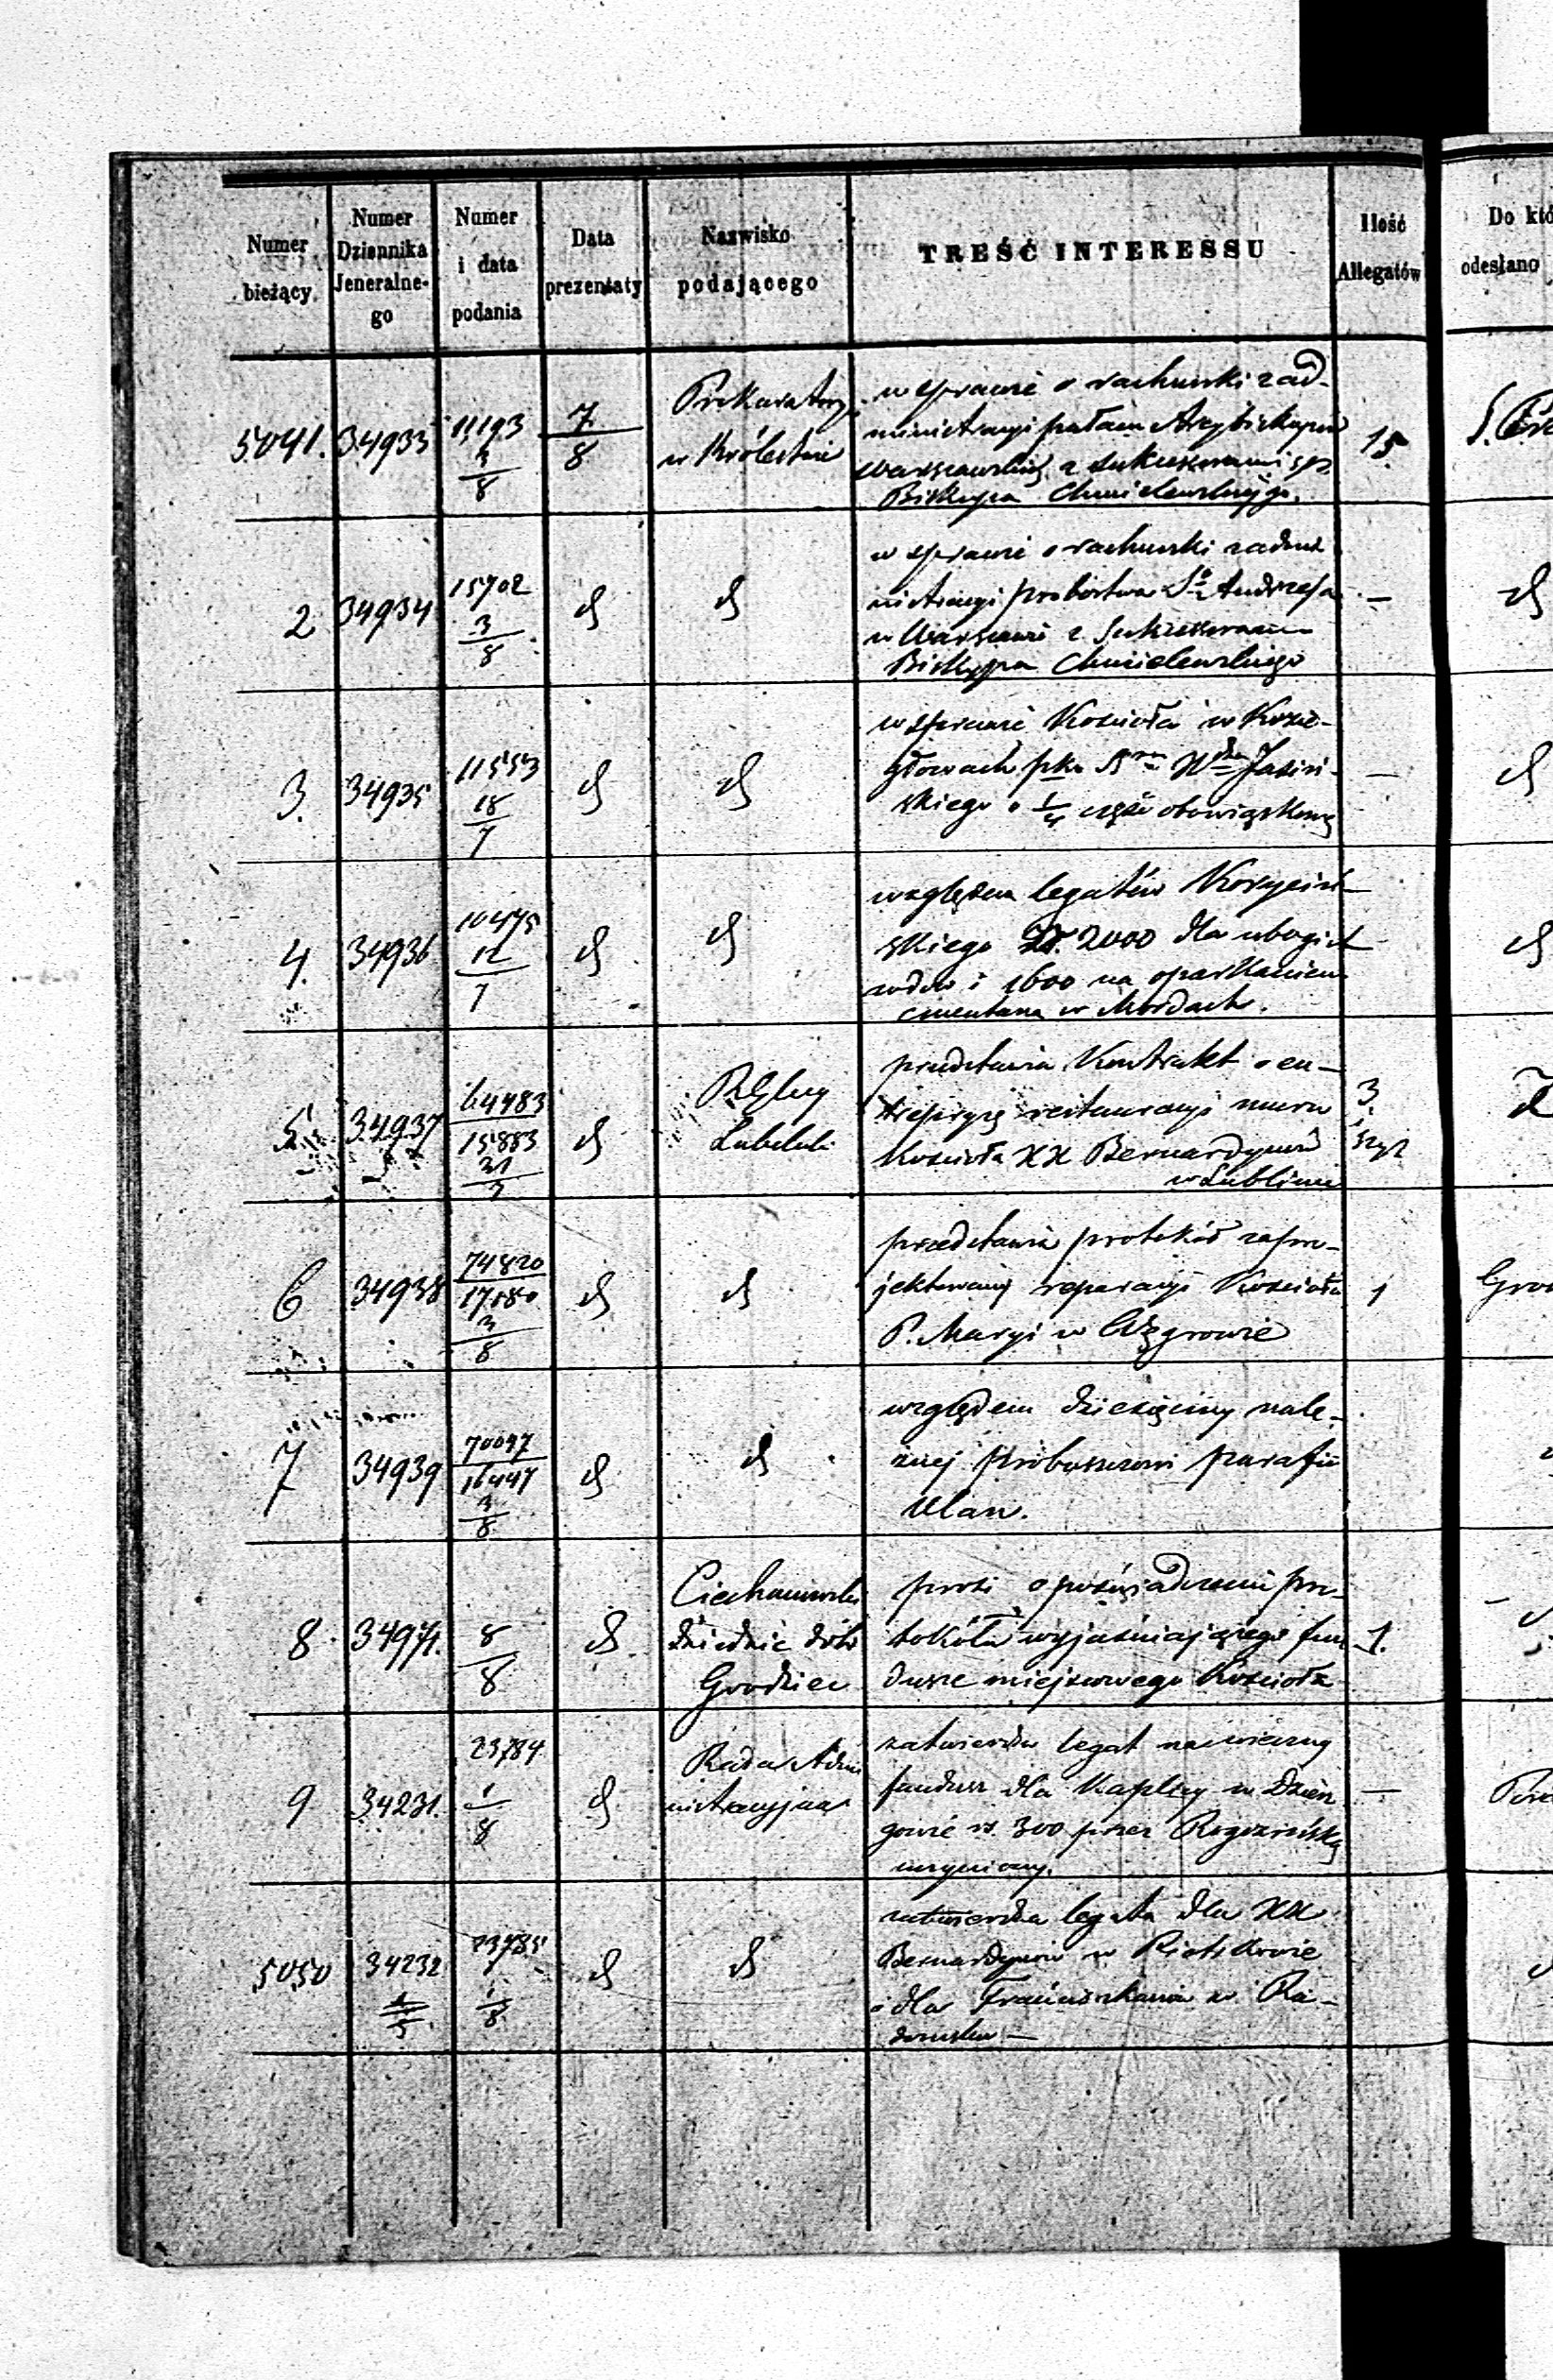 Numer bieżący
Numer Dziennika Jeneralne-go
Numer i data podania
Data prezentaty
Nazwisko podającego
TREŚĆ INTERESSU
Ilość Allegatów
Do któ
odesłano
5041. 34933 11193 3/8 7/8 Prokuratorya
w Królestwie
w sprawie o rachunki zad-
ministracyi pałacu Arcybiskupów
Warszawskich z sukcessorami śp.
Biskupa Chmielewskiego.
15.
2 34934 15702 3/8 d d
w sprawie o rachunki zadmi
nistracyi probostwa Sgo Andrzeja
w Warszawie z Sukcessorami
Biskupa Chmielewskiego
— d
3. 34935 11553 18/7 d d
w sprawie Kościoła w Kozie-
głowach pko Jasiń-
skiego o część obowiązkową
— d
4. 34936 10475 12/7 d d
względem legatów Koryciń-
skiego Zł. 2000 dla ubogich
wdów i 1600 na oparkanienie
cmentarza w Mordach.
d
5. 34937 64483 15883 31/7 d RGlny
Lubelski
przedstawia Kontrakt o en-
trepryzę restauracyi muru
Kościoła XX Bernardynów
w Lublinie
3.
6 34938 74820 17180 3/8 d d
przedstawia protokół zapro-
jektowanej reparacyi Kościoła
P. Maryi w Węgrowie
1
7 34939 70047 16447 3/8 d d
względem dziesięciny nale-
żnej proboszczowi parafii
Ulan.
8 34971. 8/8 d Ciechanowski
dziedzic dóbr
Grodziec
prosi o poświadczenie pro-
tokółu wyjaśniającego fun
dusze miejscowego Kościoła
1.
9 34231. 23784 1/8 d Rada Admi
nistracyjna
zatwierdza legat na wieczny
fundusz dla Kaplicy w
gowie rs. 300 przez Rogozińską
uczyniony.
—
5050 34232 23785 1/8 d d
zatwierdza legata dla XX
Bernardynów w Piotrkowie
i dla Franciszkanów w Ra-
domsku —